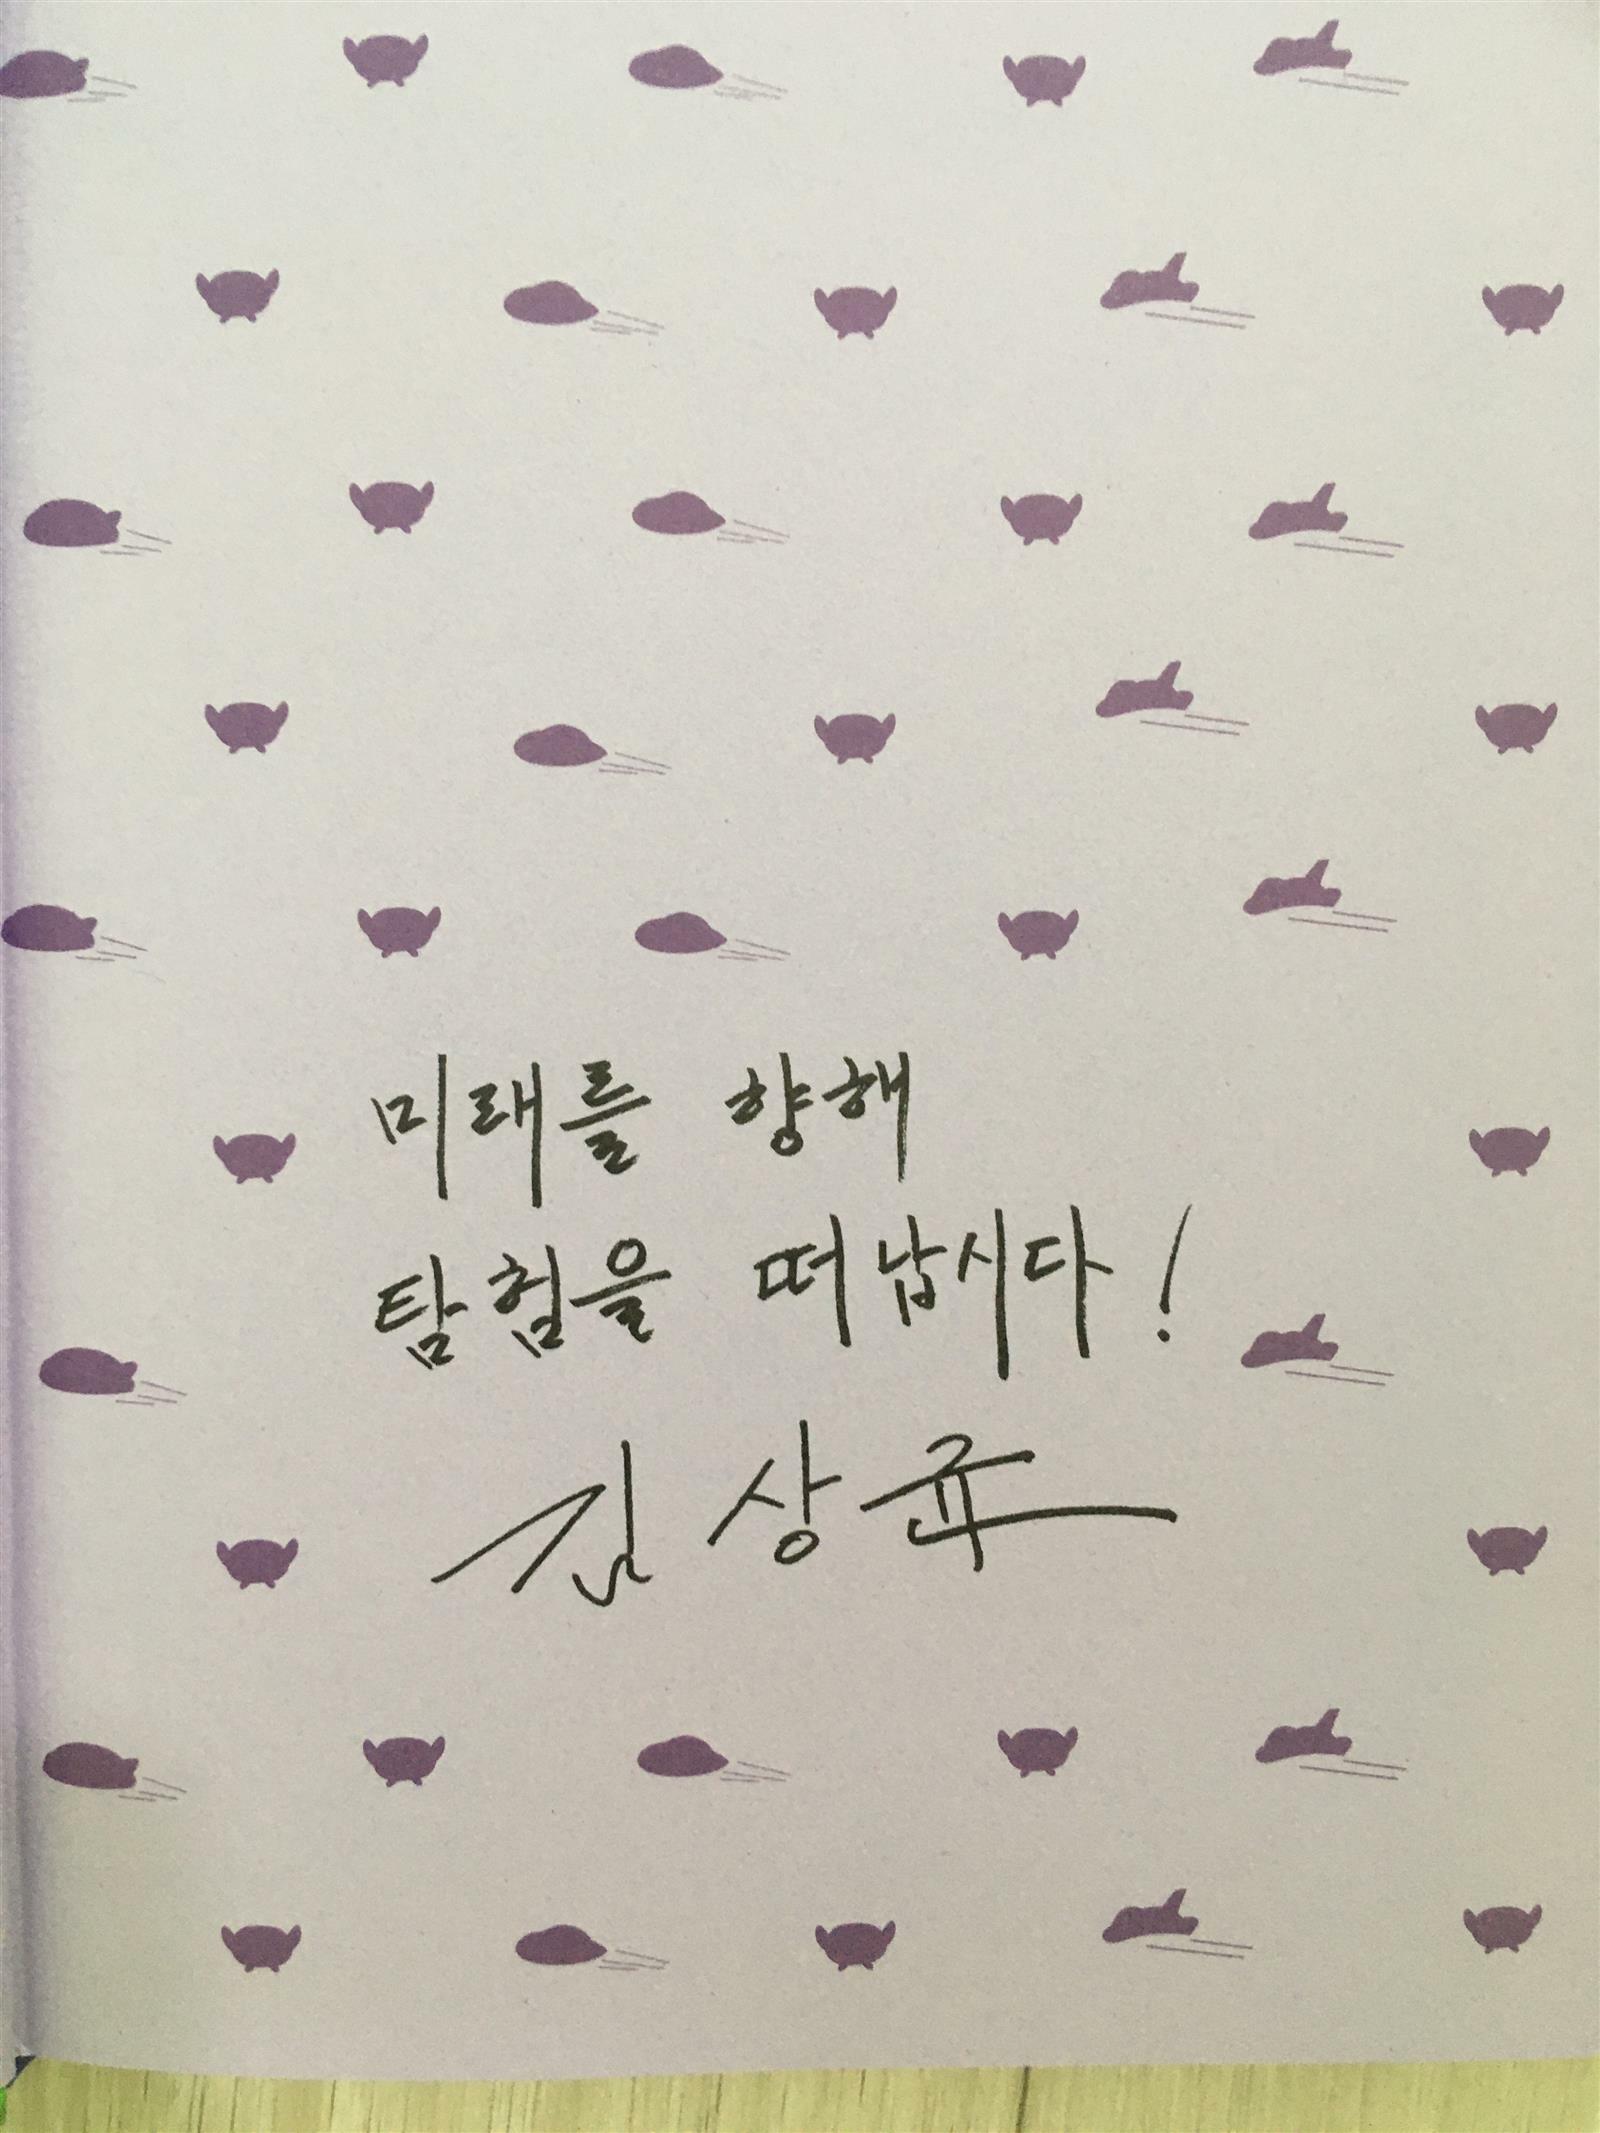 미래를 향해
탐험을 떠납시다!
김상균